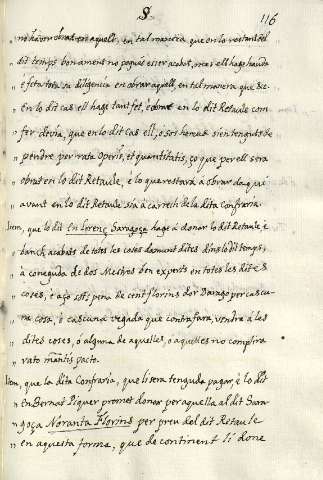 8
116
" no ha son obrat en aquell, en tal manera que en lo restant del
" dit temps bonament no pogues esser acabat, mes ell hage hauda
" e feta tota sa diligencia en obrar aquell, en tal manera que dic
" en lo dit cas ell hage tant fet, e obrat en lo dit Retaule com
" fer devia, que en lo dit cas ell, o sos hereus sien tenguts de
" pendre per rata Operis, et quantitatis, ço que per ell sera
" obrat en lo dit Retaule, e lo que restarà a obrar daqui
" avant en lo dit Retaule sia a carrech de la dita Confraria.
Item, que lo dit En Lorenç Saragoça hage à donar lo dit Retaule è
" banch acabats de totes les coses damunt dites dins lo dit temps,
" à coneguda de dos Mestres ben experts en totes les dites
" coses, e açò sots pena de cent florins dor Darago per cascu-
" na cosa, ò cascuna vegada que contrafarà, vendra à les
" dites coses, ò alguna de aquelles, o aquelles no complira
" rato manente pacto.
Item, que la dita Confraria, que li sera tenguda pagar, è lo dit
" En Bernat Piquer promet donar per aquella al dit Sara-
" goça Noranta Florins per preu del dit Retaule
" en aquesta forma, que de continent li done